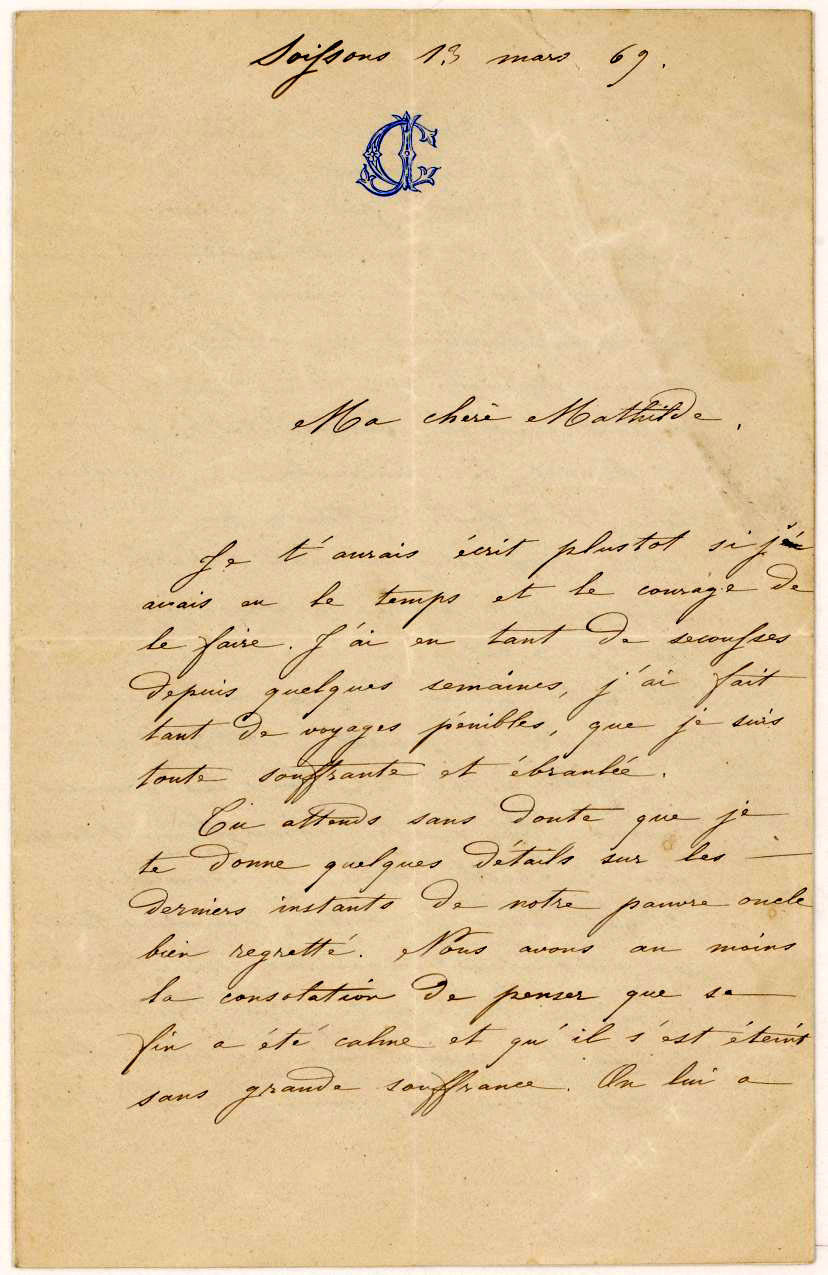 Soissons 13 mars 69.
Ma chère Mathilde,
Je t'aurais écrit plustot si j'
avais eu le temps et le courage de
le faire. J'ai eu tant de secousses
depuis quelques semaines, j'ai fait
tant de voyages pénibles, que je suis
toute souffrante et ébranlée.
Tu attends sans doute que je
te donne quelques détails sur les —
derniers instants de notre pauvre oncle
bien regretté. Nous avons au moins
la consolation de penser que sa
fin a été calme et qu'il s'est éteint
sans grande souffrance. On lui a